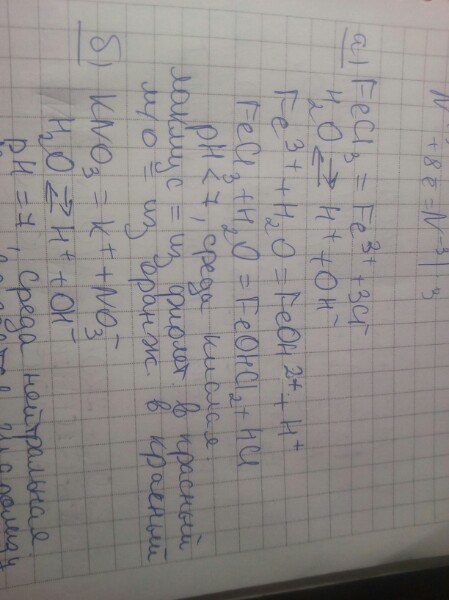 +8e = N⁻³ | 3
а) FeCl₃ = Fe³⁺ + 3Cl⁻
H₂O ⇄ H⁺ + OH⁻
Fe³⁺ + H₂O = FeOH²⁺ + H⁺
FeCl₃ + H₂O = FeOHCl₂ + HCl
pH < 7, среда кислая
лакмус = из фиолет. в красный
м/о = из оранж в красный
б) KNO₃ = K⁺ + NO₃⁻
H₂O ⇄ H⁺ + OH⁻
pH = 7, среда нейтральная